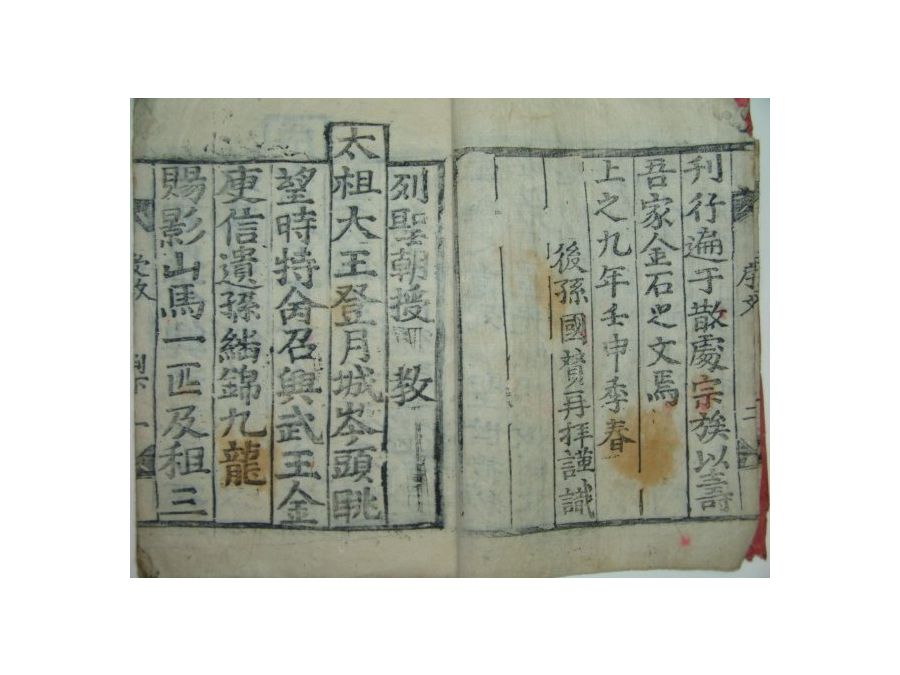 刊行遍于散處宗族以壽
吾家金石之文焉
上之九年壬申季春
後孫國賛再拜謹識
序文
二
列聖朝授 教
太祖大王登月城岑頭眺
望時特命召興武王金
庾信遺孫繙錦九龍
賜影山馬一匹及租三
受教
一